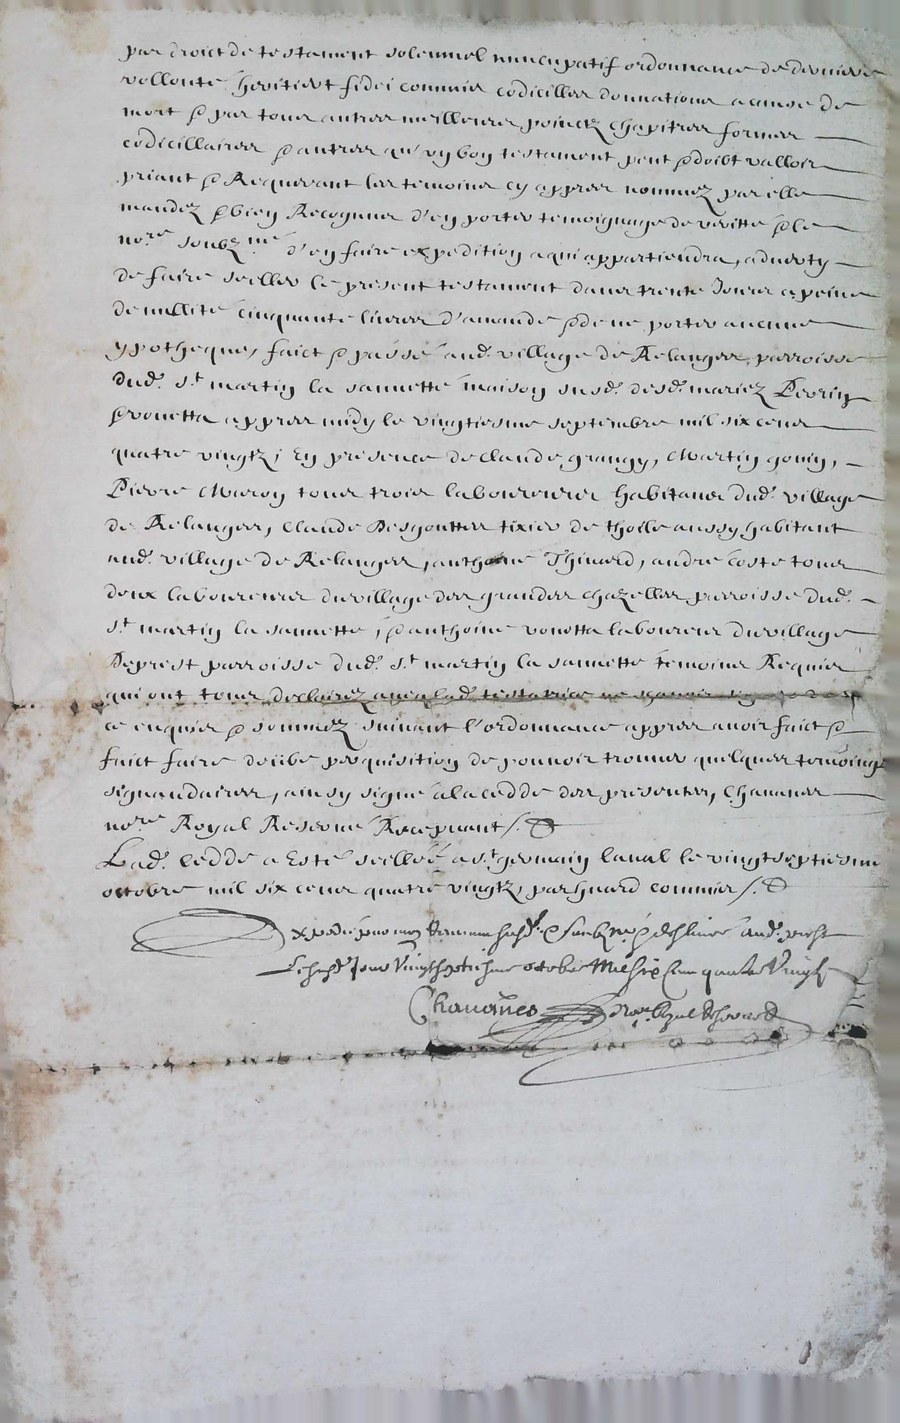 par droict de testament solemnel nuncupatif ordonnance de derniere
vollonté heritiers fidei commis codicilles donnations a cause de
mort & par tous autres meilleures poinctz chapitres formes
codicillaires & autres qu'un bon testament peut & doibt valloir
priant & Requerant les temoins cy appres nommez par elle
mandez & bien Recognus d'en porter temoignage de veritté & le
no.re soubz.né d'en faire expedition a qui appartiendra, adverty
de faire seeller le present testament dans trente Jours a peine
de nullité cinquante livres d'amande & de ne porter aucune
ypotheque, faict & passé aud. village de Relanges, parroisse
dud. s.t martin la sauvetté maison susd. desd. mariez Perrin
& vonetta appres midy le vingtiesme septembre mil six cens
quatre vingtz, En presence de claude grangy, Martin gonin,
Pierre Maron tous trois laboureurs habitans dud. village
de Relanges, Claude Desgouttes tixier de thoille aussy habitant
aud. village de Relanges, anthoine Thinard, andré coste tous
deux laboureurs du village des grandes chazelles parroisse dud.
s.t martin la sauvetté, & anthoine vonetta laboureur du village
Deprest parroisse dud. s.t martin la sauvetté temoins Requis
qui ont tous declairez avec lad. testatrice ne scavoir signer
de ce enquis & sommez suivant l'ordonnance appres avoir faict &
faict faire deube perquisition de pouvoir trouver quelques temoings
signandaires, ainsy signé a la cedde des presentes, Chavanes
no.re Royal Reservé Recepvant
Lad. cedde a Esté seellée a s.t germain laval le vingtseptiesme
octobre mil six cens quatre vingtz, par Guard commis
Expedié
Jour Vingtseptiesme octobre Mil six Cens quatre Vingtz
Chavanes no.re Royal Reservé